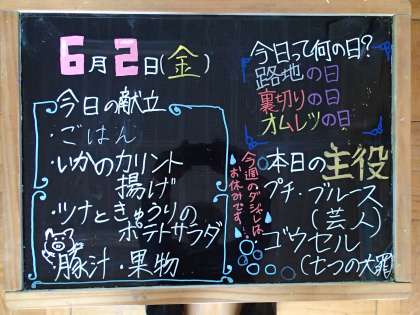 6月2日(金)
今日の献立
・ごはん
・いかのカリント
揚げ
・ツナときゅうりの
ポテトサラダ
・豚汁・果物
今日って何の日?
路地の日
裏切りの日
オムレツの日
今週のダジャレは
お休みです…
本日の主役
プチ・ブルース
(芸人)
ゴウセル
(七つの大罪)